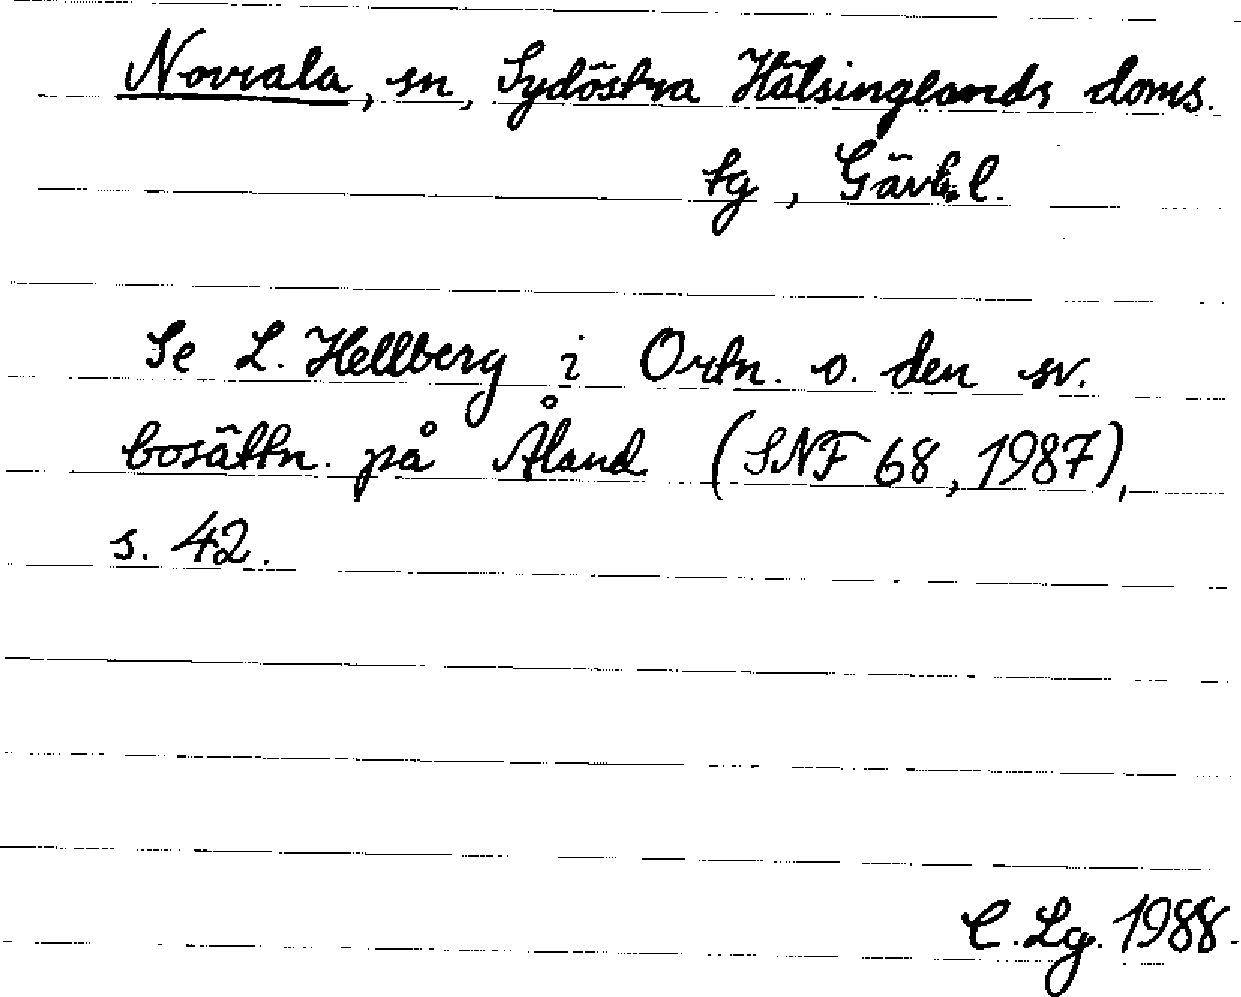 Norrala, sn, Sydöstra Hälsinglands doms.
sg, Gävl. l.
Se L. Hellberg i Ortn. o. den sv.
bosättn. på Åland (SNF 68, 1987),
s. 42.
C. Lg. 1988.